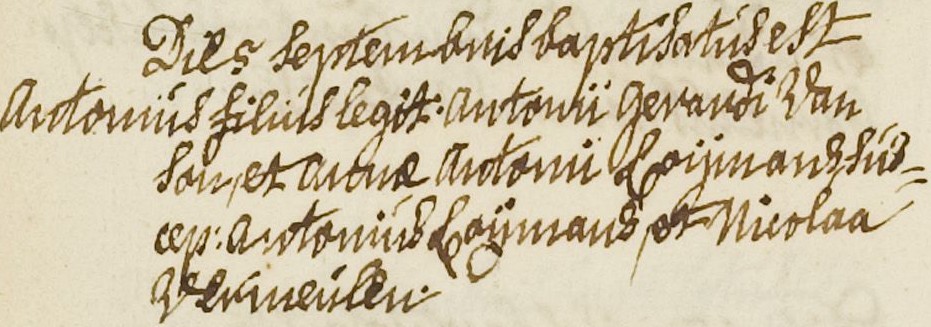 Die 5 septembris baptisatus est
Antonius filius legit: Antonii Gerardi Van
Son, et Annae Antonii Loijmans, sus=
cep: Antonius Loijmans, et Nicolaa
Vermeulen.